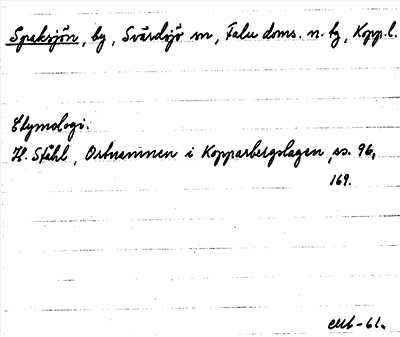 Spaksjön, by, Svärdsjö sn, Falu doms. n. tg, Kopp. l.
Etymologi:
H. Ståhl, Ortnamnen i Kopparbergslagen, ss. 96,
169.
-61.